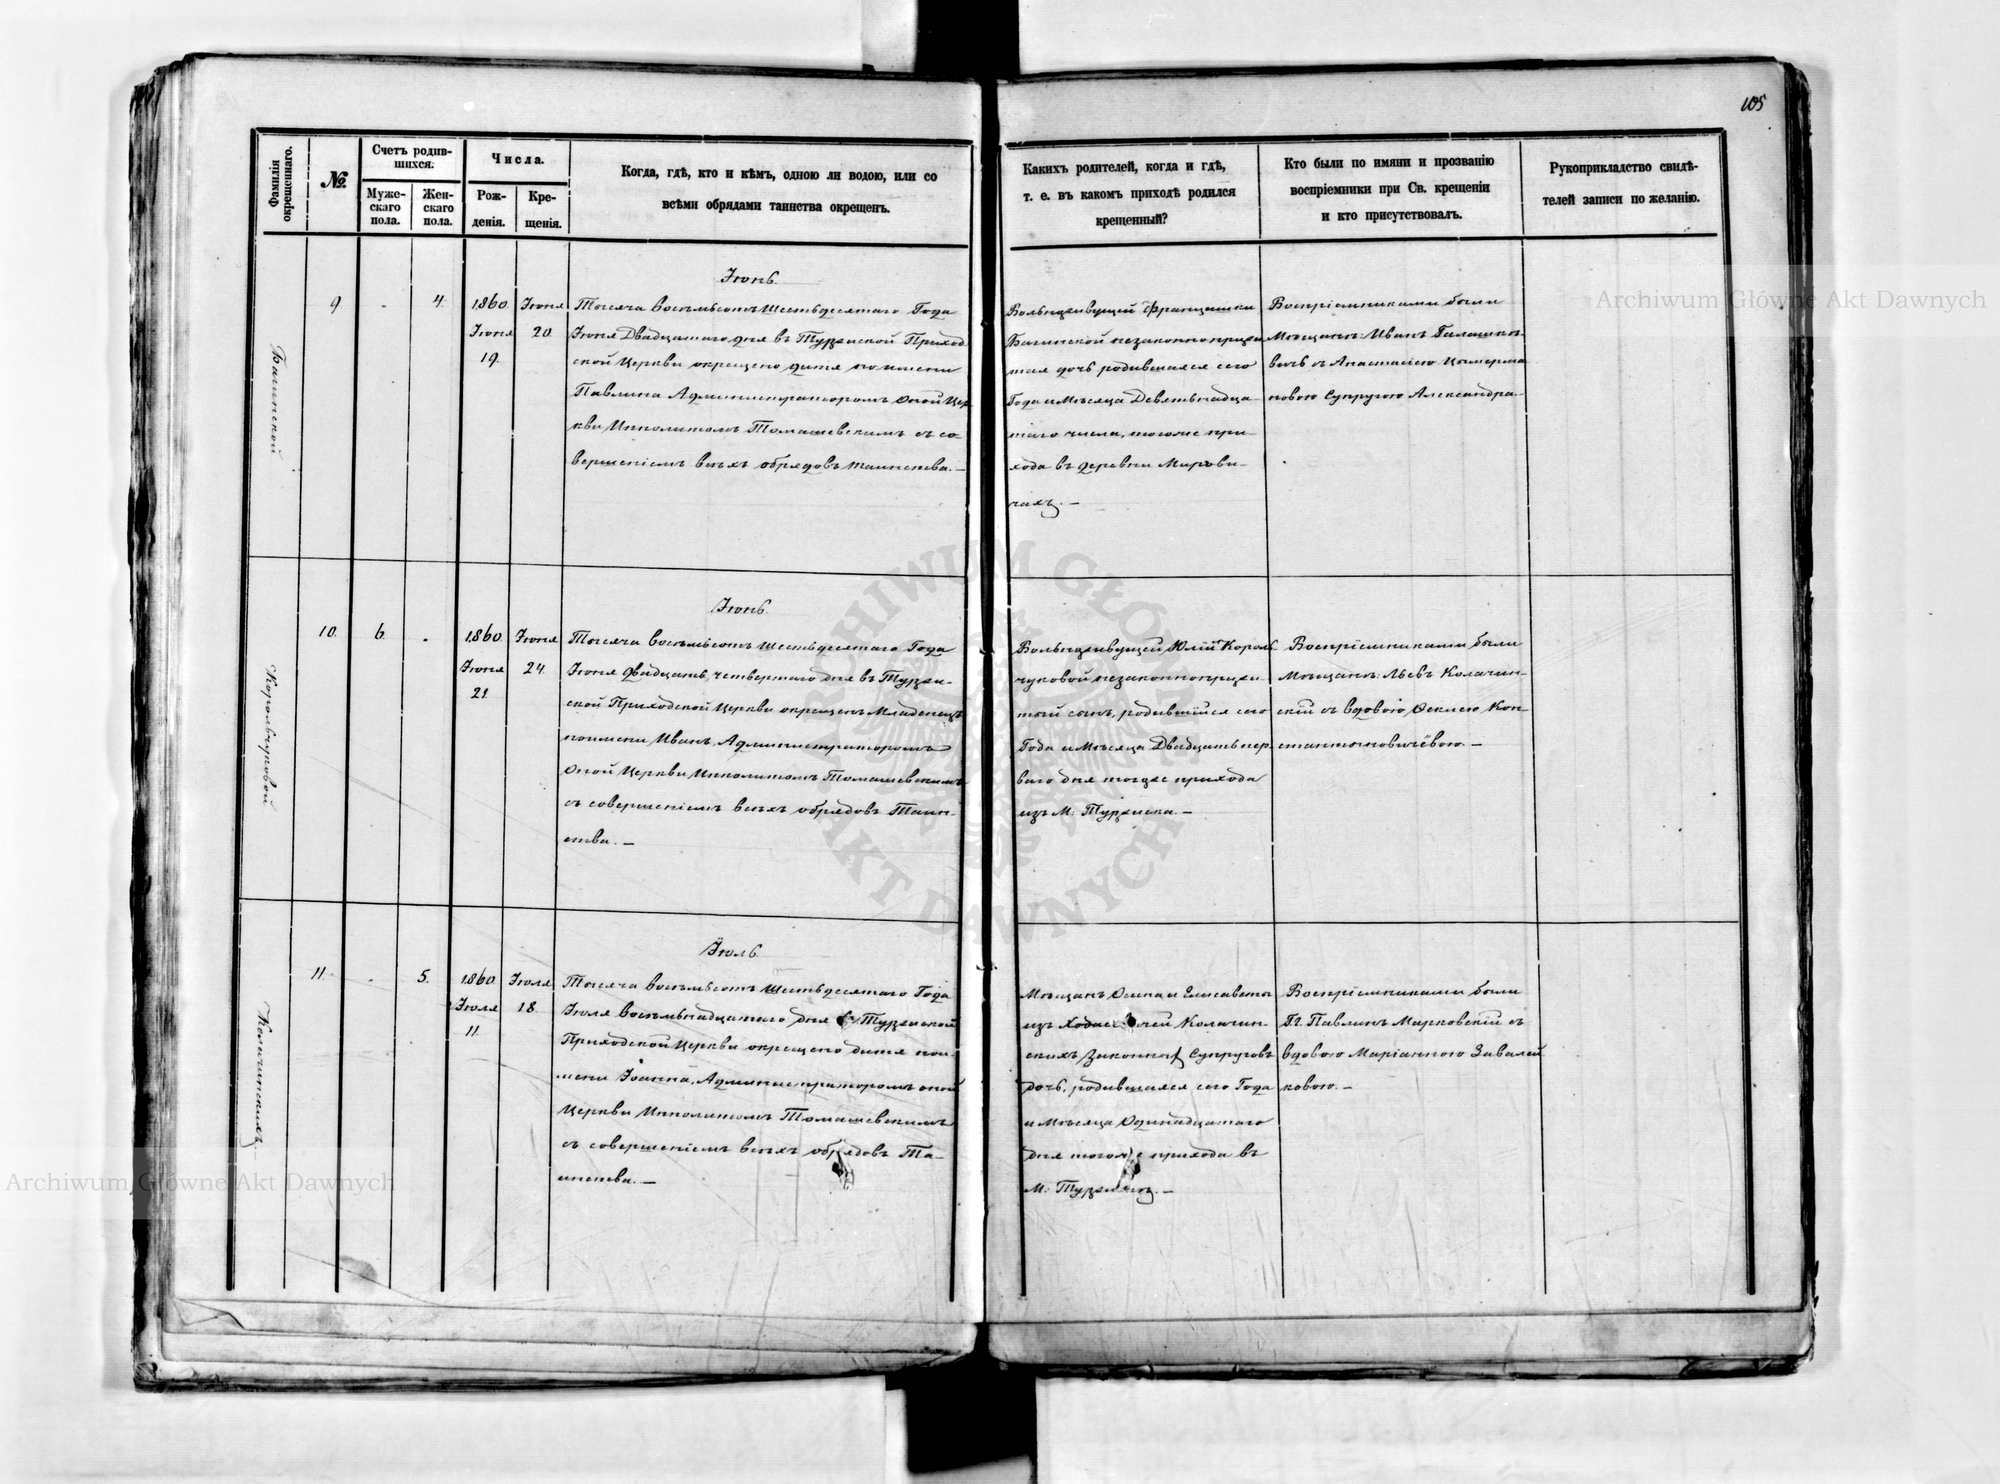 105
Фамилія окрещеннаго.
№
Счетъ родив-
шихся.
Муже-
скаго
пола.
Жен-
скаго
пола.
Числа.
Рож-
денія.
Кре-
щенія.
Когда, гдѣ, кто и кѣмъ, одною ли водою, или со
всѣми обрядами таинства окрещенъ.
Какихъ родителей, когда и гдѣ,
т. е. въ какомъ приходѣ родился
крещенный?
Кто были по имяни и прозванію
воспріемники при Св. крещеніи
и кто присутствовалъ.
Рукоприкладство свидѣ-
телей записи по желанію.
Багинской
9
-
4.
1860
Іюня
19.
Іюня
20.
Іюнь.
Тысяча восемьсотъ шестьдесятаго Года
Іюня Двадцатаго дня въ Турійской Приход
ской Церкви окрещено дитя по имени
Павлина Администраторомъ Оной Цер
кви Ипполитомъ Томашевскимъ съ со-
вершеніемъ всѣхъ обрядовъ таинства.—
Вольноживущей Францишки
Багинской незаконноприжи
тая дочь родившаяся сего
Года и Мѣсяца Девятьнадца-
таго числа, тогоже при-
хода въ деревни Мирови-
чахъ.—
Воспріемниками были
Мѣщанъ: Иванъ
вичъ съ Анастасіею
новою Супругою Александра-
Корольчуковой
10.
6.
-
1860.
Іюня
21.
Іюня
24.
Іюнь.
Тысяча восемьсотъ шестьдесятаго Года
Іюня Двадцать четвертаго дня въ Турій-
ской Приходской Церкви окрещенъ Младенецъ
поимени Иванъ, Администраторомъ
Оной Церкви Ипполитомъ Томашевскимъ
съ совершеніемъ всѣхъ обрядовъ Таин-
ства.—
Вольноживущей Юлій Король-
чуковой незаконноприжи-
тый сынъ, родившійся сего
Года и Мѣсяца Двадцать пер-
ваго дня тогоже прихода
изъ М: Турійска.—
Воспріемниками были
Мѣщанъ: Левъ Колачин-
скій съ вдовою Феклею Кон-
стантиновичёвою.—
Колачинскихъ
11.
-
5.
1860
Іюля
11.
Іюля
18.
Іюль.
Тысяча восемьсотъ шестьдесятаго Года
Іюля восемьнадцатаго дня въ Турійской
Приходской Церкви окрещено дитя пои-
мени Іоанна, Администраторомъ оной
Церкви Ипполитомъ Томашевскимъ
съ совершеніемъ всѣхъ обрядовъ Та-
инства.—
Мѣщанъ Осипа и Елисаветы
изъ Колачин-
скихъ Законныхъ Супруговъ
дочь, родившаяся сего Года
и Мѣсяца Одинадцатаго
дня тогоже прихода въ
М: Турійскъ.—
Воспріемниками были
Павлинъ Марковскій съ
вдовою Маріанною Завалей
ковою.—
Archiwum Główne Akt Dawnych
ARCHIWUM GŁÓWNE AKT DAWNYCH
Archiwum Główne Akt Dawnych